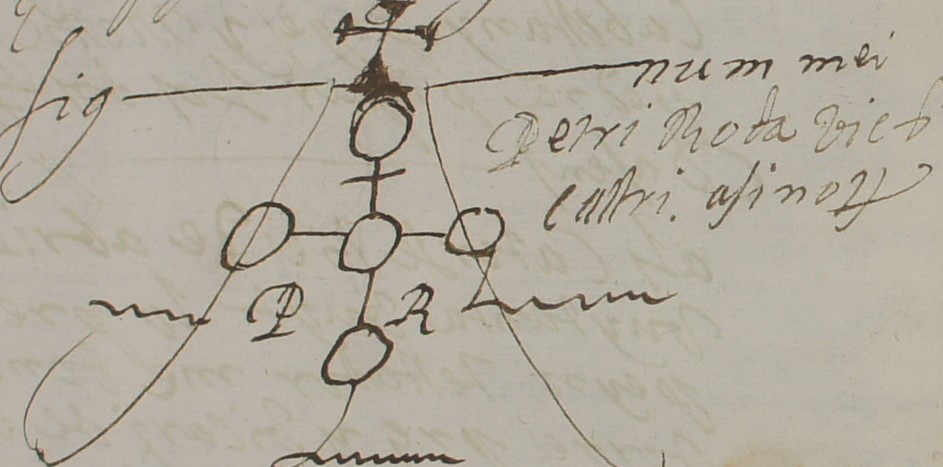 Sig num mei
Petri Rota
castri. asinoꝝ
P R